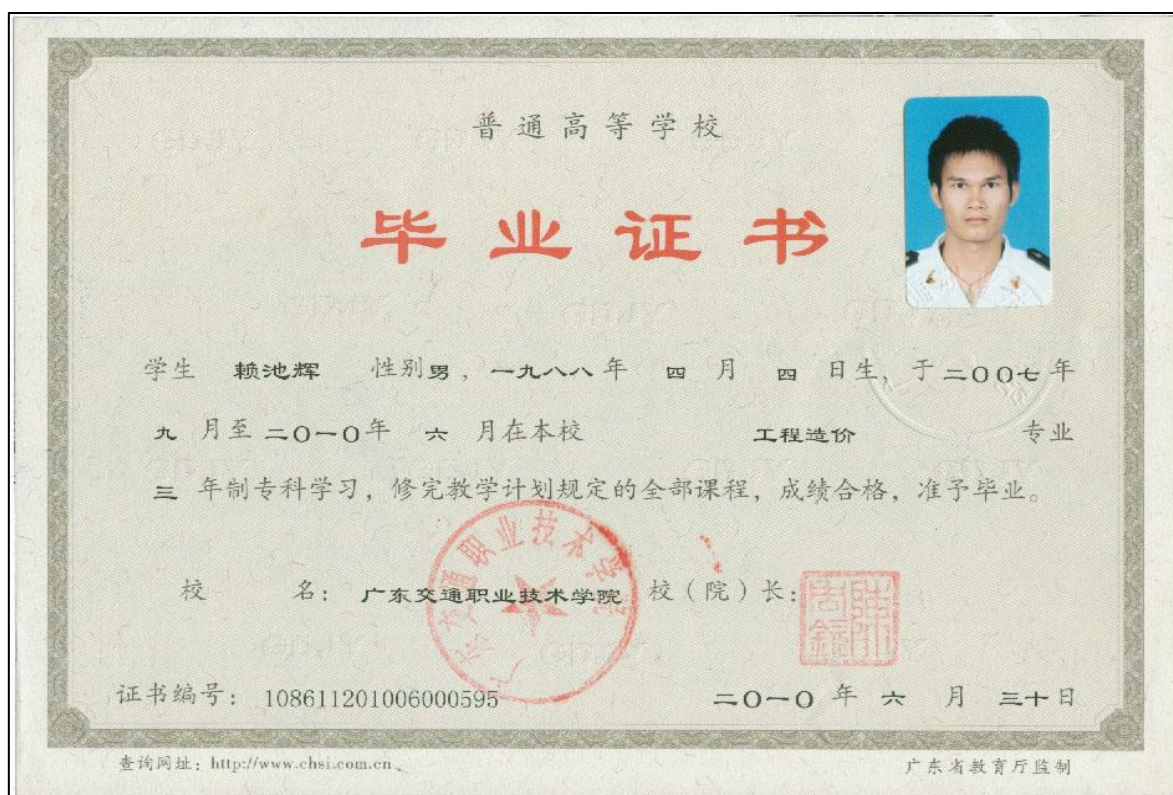 普通高等学校
毕业证书
学生 赖池辉 性别男，一九八八年 四 月 四 日生，于二〇〇七年
九 月至二〇一〇年 六 月在本校 工程造价 专业
三 年制专科学习，修完教学计划规定的全部课程，成绩合格，准予毕业。
校 名：广东交通职业技术学院 校（院）长：
广东交通职业技术学院
证书编号：108611201006000595 二〇一〇 年 六 月 三十日
查询网址：http://www.chsi.com.cn、 广东省教育厅监制